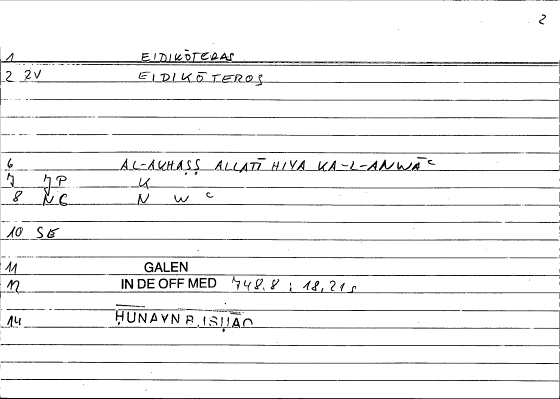 2
1 EIDIKŌTERAS
2 2V EIDIKŌTEROS
6 AL-AKHAṢṢ ALLATĪ HIYA KA-L-ANWĀʿ
7 JP K
8 NC N W ʿ
10 SE
11 GALEN
12 IN DE OFF MED 748.8 ; 18,21s
14 ḤUNAYN B.ISḤĀQ